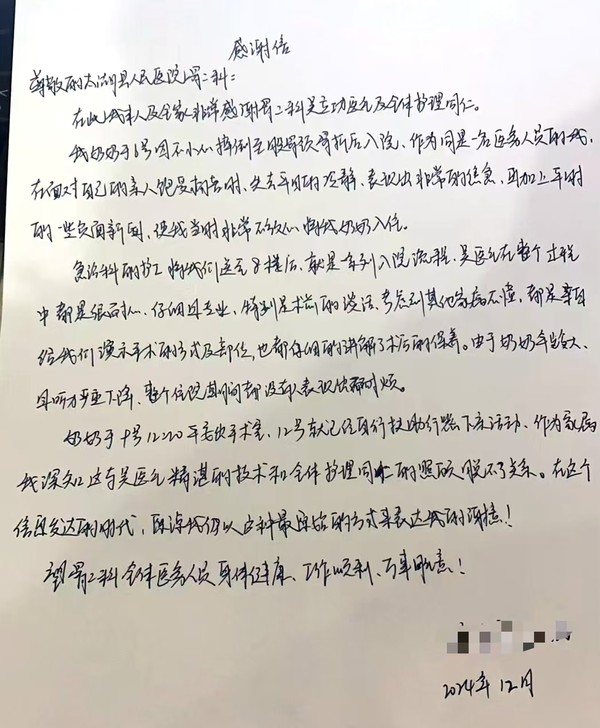 感谢信
尊敬的太湖县人民医院骨二科:
在此我本人及全家非常感谢骨二科吴立功医生及全体护理同仁。
我奶奶于6号因不小心摔倒至股骨颈骨折后入院、作为同是一名医务人员的我,
在面对自己的亲人饱受折磨时、失去平日的冷静、表现出非常的焦急、再加上平时
的一些负面新闻、使我当时非常不放心将我奶奶入住。
急诊科的护工将我们送至8楼后、就是一系列入院流程、吴医生在整个过程
中都是很耐心、仔细且专业、特别是术前的谈话、考虑到其他家属不懂、都是亲自
给我们演示手术的方式及部位,也都仔细的讲解了术后的保养。由于奶奶年龄大、
耳听力严重下降、整个住院期间都没有表现出不耐烦。
奶奶于9号12:20平安出手术室、12号就已经自行扶助行器下床活动、作为家属
我深知这与吴医生精湛的技术和全体护理同仁的照顾脱不了关系。在这个
信息发达的时代,原谅我仍以这种最原始的方式来表达我的谢意!
望骨二科全体医务人员身体健康、工作顺利、万事如意!
2024年12月